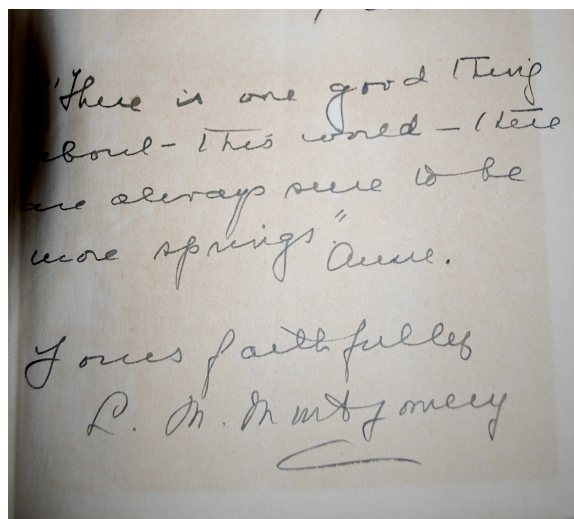 "There is one good thing
about this world – there
are always sure to be
more springs". Anne.
Yours faithfully
L. M. Montgomery